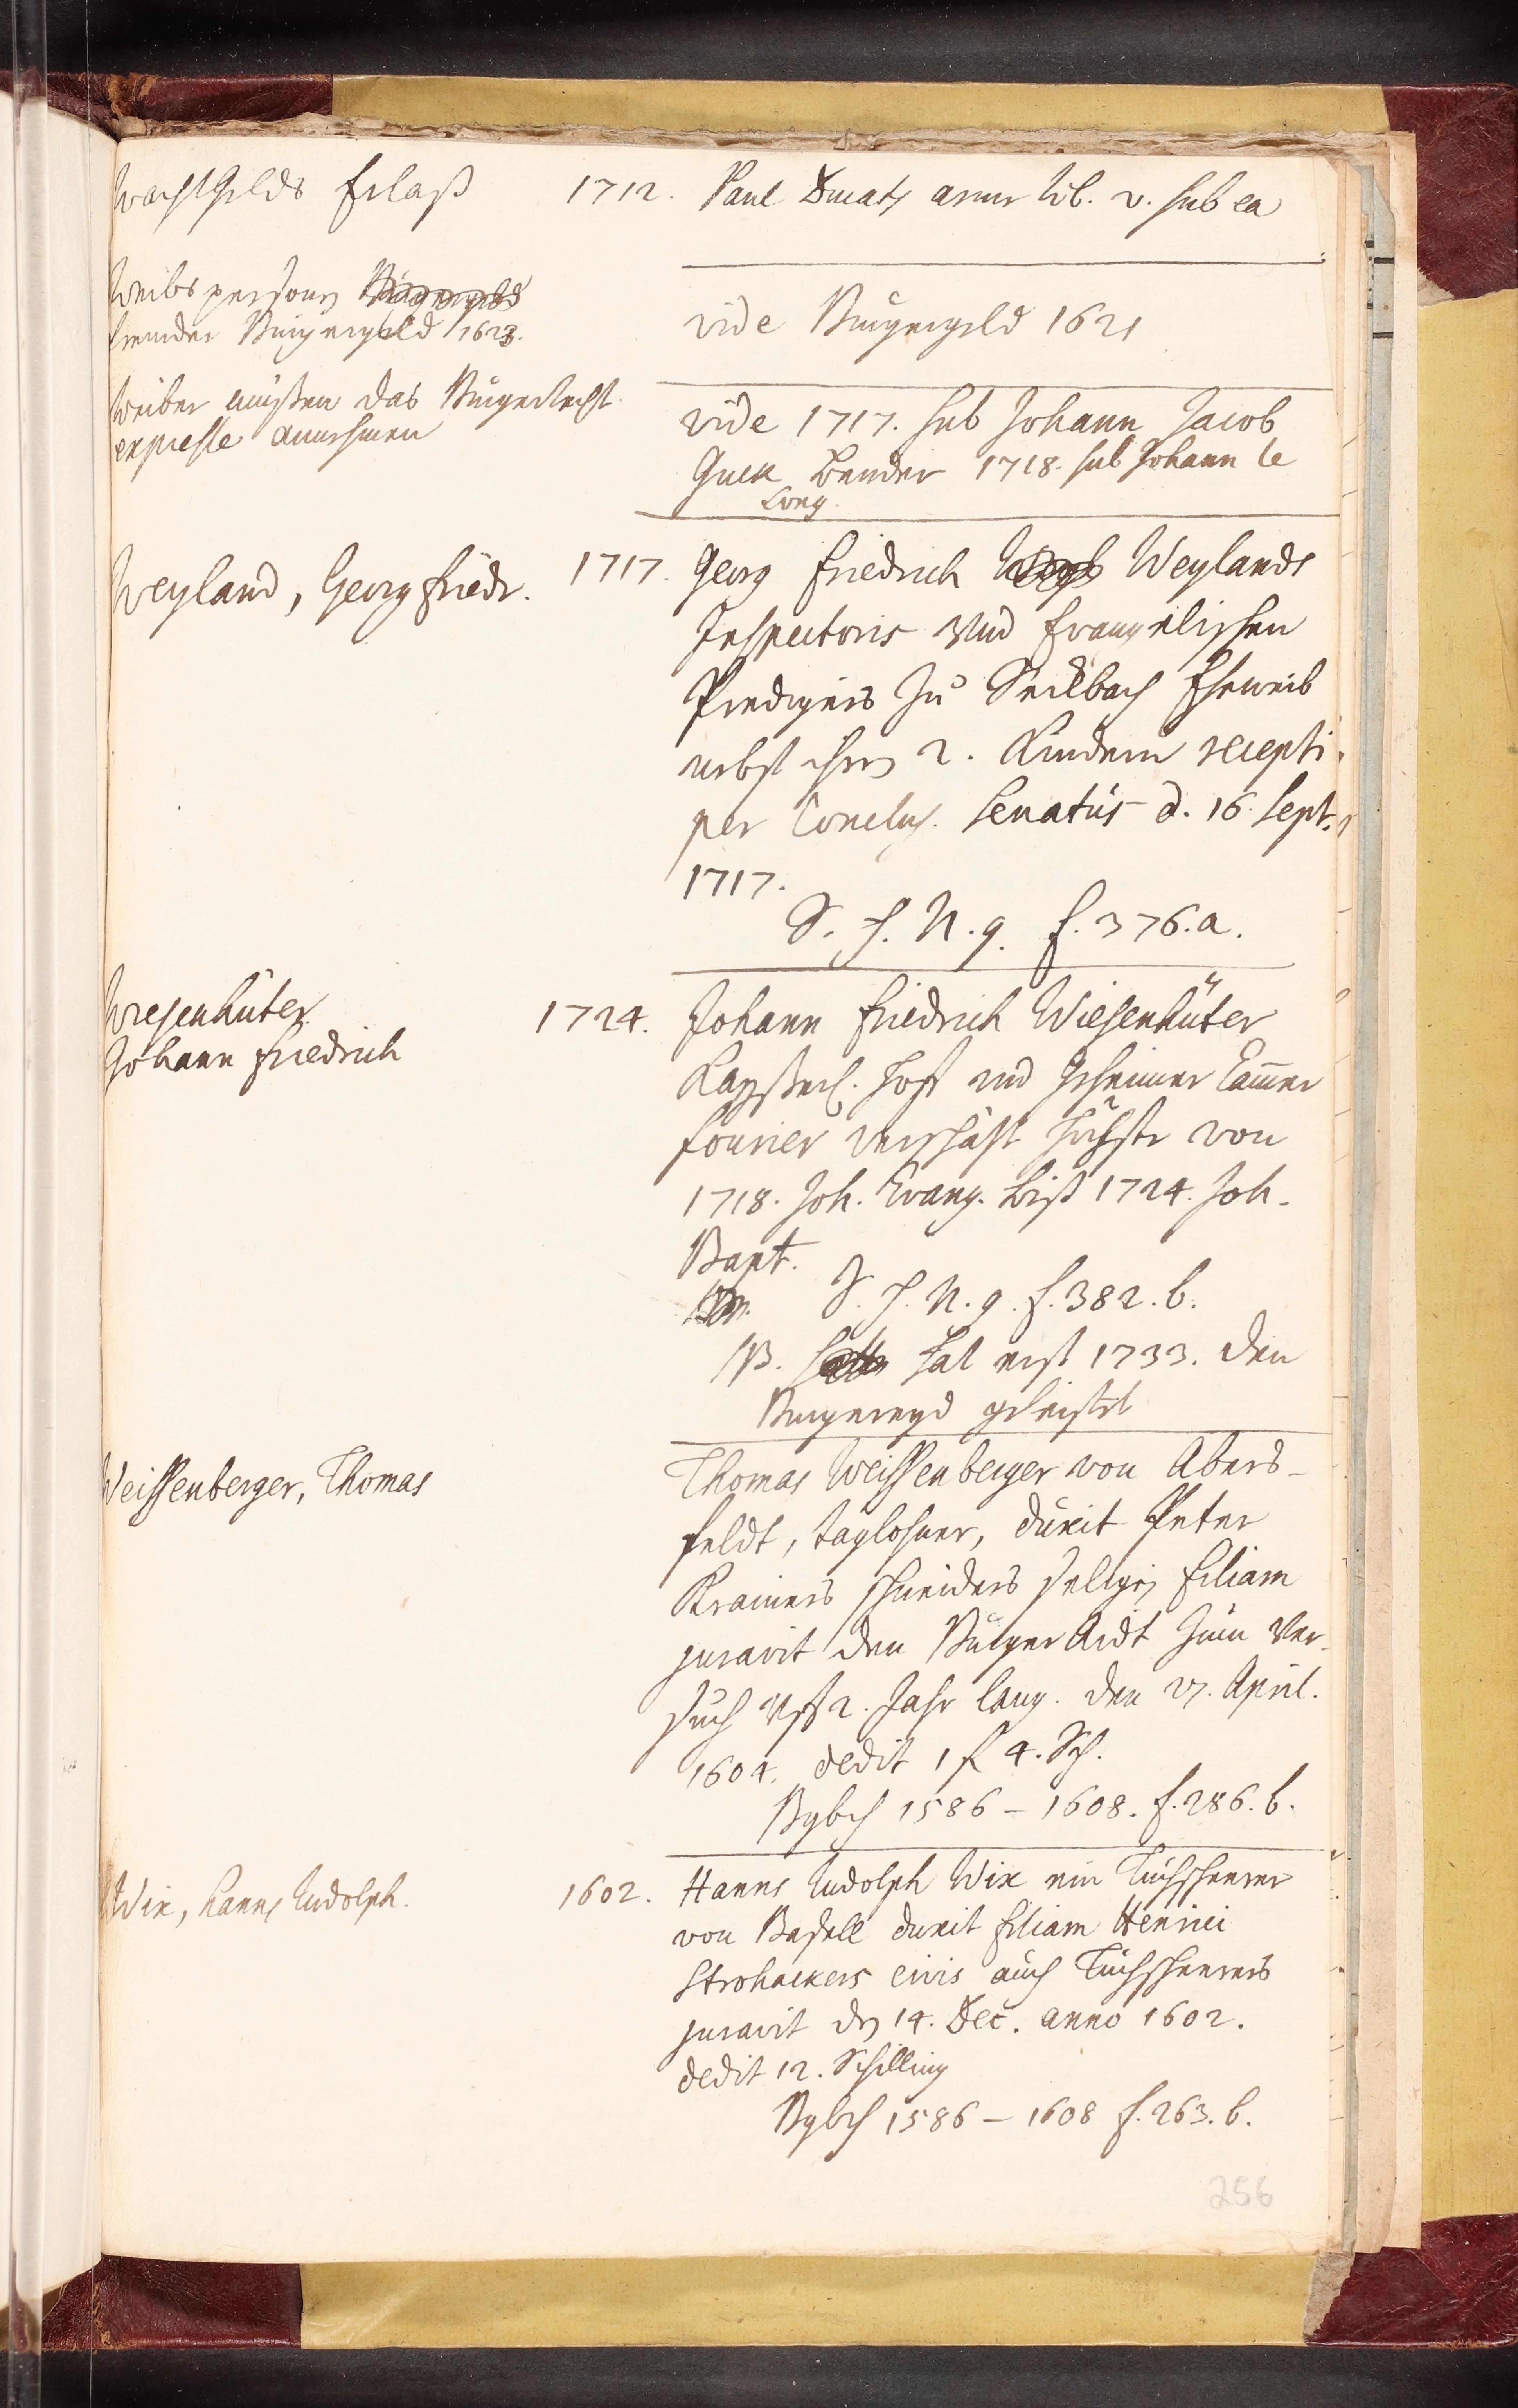 Wachtgelds Erlaß 1712. Paul arme Wb. v. sub ea
Weibs persohn
fremder Burgergeld 1623.
vide Burgergeld 1621
Weiber müßen das Burgerrecht
expresse annehmen
vide 1717. sub Johann Jacob
Guck Bender 1718. sub Johann le
Long.
Weyland, Georg Friedr. 1717. Georg Friedrich Weylands
Inspectoris Und Evangelischen
Predigers Zu Seckbach Eheweib
nebst ihren 2. Kindern recepti
per Conclus. Senatus d. 16. Sept.
1717.
S. H. N. 9. f. 376. a.
Wiesenhüter
Johann Friedrich
1724. Johann Friedrich Wiesenhüter
Kayßerl. Hoff und Geheimer Cammer
fourier verschäzt von
1718. Joh. Evang. biß 1724. Joh.
Bapt.
S. H. N. 9. f. 382. b.
NB. hat erst 1733. den
Burgereyd geleistet
Weissenberger, Thomas
Thomas Weissenberger von Abers-
feldt, taglohner, duxit Peter
Kramers schneiders seligen filiam
juravit den Burger Aidt Zum Ver-
such Uff 2. Jahr lang. den 27. April.
1604. dedit 1 f 4. Sch.
Bgbch 1586 - 1608. f. 286. b.
Wix, Hanns Rudolph. 1602. Hanns Rudolph Wix ein Tuchscherer
von Basell duxit filiam Henrici
Strohackers civis auch Tuchscherers
juravit den 14. Dec. anno 1602.
dedit 12. Schilling
Bgbch 1586 - 1608 f. 263. b.
256